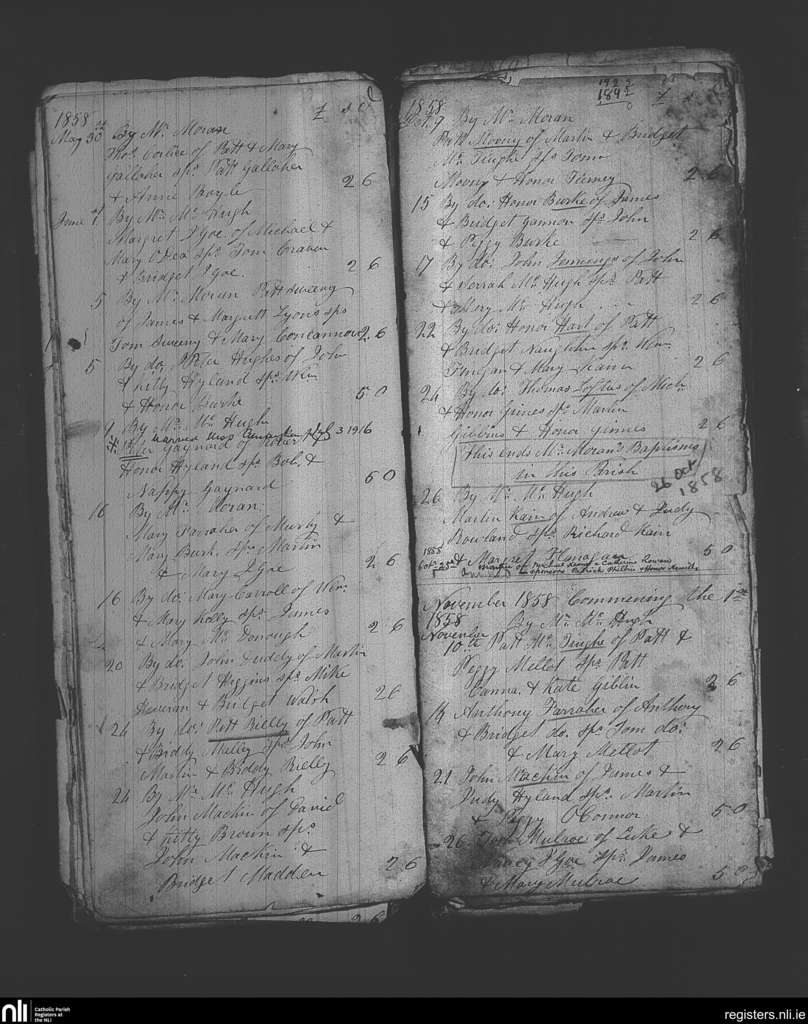 1858
£ s d
May 30th By Mr. Moran
Thos. of Patt & Mary
Gallaher sps. Patt Gallaher
& Annie Boyle 2 6
June 1 By Mr. Mc Hugh
Margret Igoe of Michael &
Mary O'Dea sps Tom Craven
& Bridget Igoe. 2 6
5 By Mr. Moran Patt Sweeny
of James & Margrett Lyons sps
Tom Sweeny & Mary Concannon 2 6
5 By do. Peter Hughes of John
& Kitty Hyland sps. Wm
& Honor Burke 5 0
9 By Mr. Mc Hugh
married 3 1916
Peter Gaynard of
Honor Hyland sps Bob. &
Nappy Gaynard 5 0
16 By Mr. Moran
Mary Farraher of Murty &
Mary Burk sps Martin
& Mary Igoe 2 6
16 By do. Mary Carroll of Wm.
& Mary Kelly sps. James
& Mary Mc Donough 2 6
20 By do. John Duddy of Martin
& Bridget Higgins sps. Mike
& Bridget Walsh 2 6
24 By do. Patt Rielly of Patt
& Biddy Malley sps. John
Martin & Biddy Rielly 2 6
24 By Mr. Mc Hugh
John Mackin of David
& Kitty Brown sps.
John Mackin &
Bridget Madden 2 6
2 6
1922
1892
1858 £
Oct. 9 By Mr. Moran
Patt Moony of Martin & Bridget
Mc. Tughe sps Tom
Moony & Honor Tierney 2 6
15 By do. Honor Burke of James
& Bridget Gannon sps. John
& Peggy Burke 2 6
17 By do. John Jennings of John
& Norrah Mc Hugh sps. Patt
& Mary Mc Hugh 2 6
22 By do. Honor Hart of Patt
& Bridget Naughton sps. Wm.
Finegan & Mary 2 6
24 By do. Thomas Loftus of Mich.
& Honor Grimes sps Martin
Gibbins & Honor Grimes 2 6
This ends Mr. Moran's Baptisms
in this Parish
26 Oct
1858
26 By Mr. Mc Hugh
Martin Kain of Andrew & Judy
Rowland sps. Richard Kain
& Margret Flanagan 5 0
1858
Oct. Martin of & Catherine
sponsors Patrick & Honor
November 1858 Commencing the 1st
1858 By Mr. Mc. Hugh
November
10th Patt Mc. Tughe of Patt &
Peggy Mellet sps. Patt
Canna. & Kate Giblin 2 6
14 Anthony Farraher of Anthony
& Bridget do. sps. Tom do.
& Mary Mellot 2 6
21 John Mackin of James &
Judy Hyland sps. Martin
& Peggy O'Connor 5 0
26 Mulroe of Luke &
Igoe sps. James
& Mary Mulroe 5
nli
Catholic Parish
Registers at
the NLI
registers.nli.ie